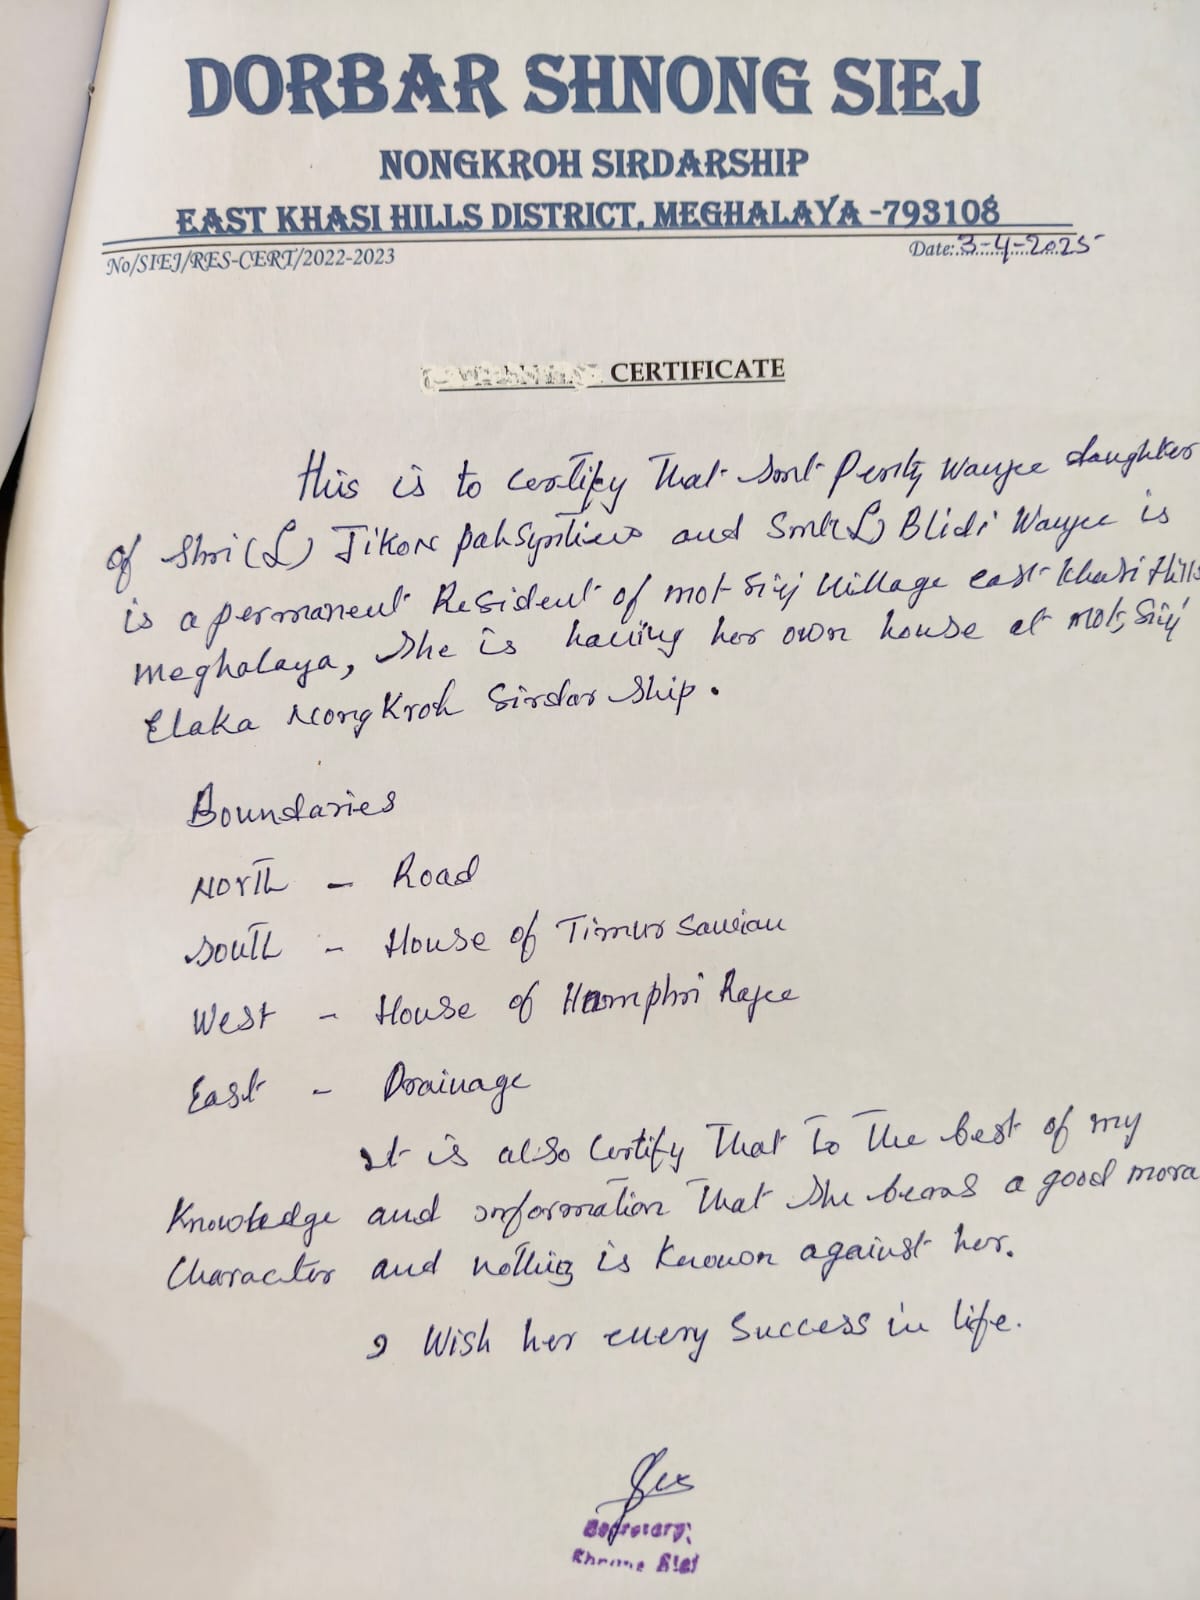 DORBAR SHNONG SIEJ
NONGKROH SIRDARSHIP
EAST KHASI HILLS DISTRICT, MEGHALAYA -793108
No/SIEJ/RES-CERT/2022-2023
Date:3-4-2025
CERTIFICATE
This is to certify That Smt Wanjee daughter
of Shri (L) Jikon and Smt (L) Blidi Wanjee is
is a permanent Resident of Mot Siej Village east Khasi Hills
Meghalaya, She is having her own house at Mot, Siej
Elaka NongKroh Sirdar Ship.
Boundaries
North - Road
South - House of Timur Sawian
West - House of Hamphri Rajee
East - Drainage
It is also Certify That To The best of my
Knowledge and information That She bears a good mora
Character and nothing is Known against her.
I Wish her every Success in life.
Secretary,
Shnong Siej